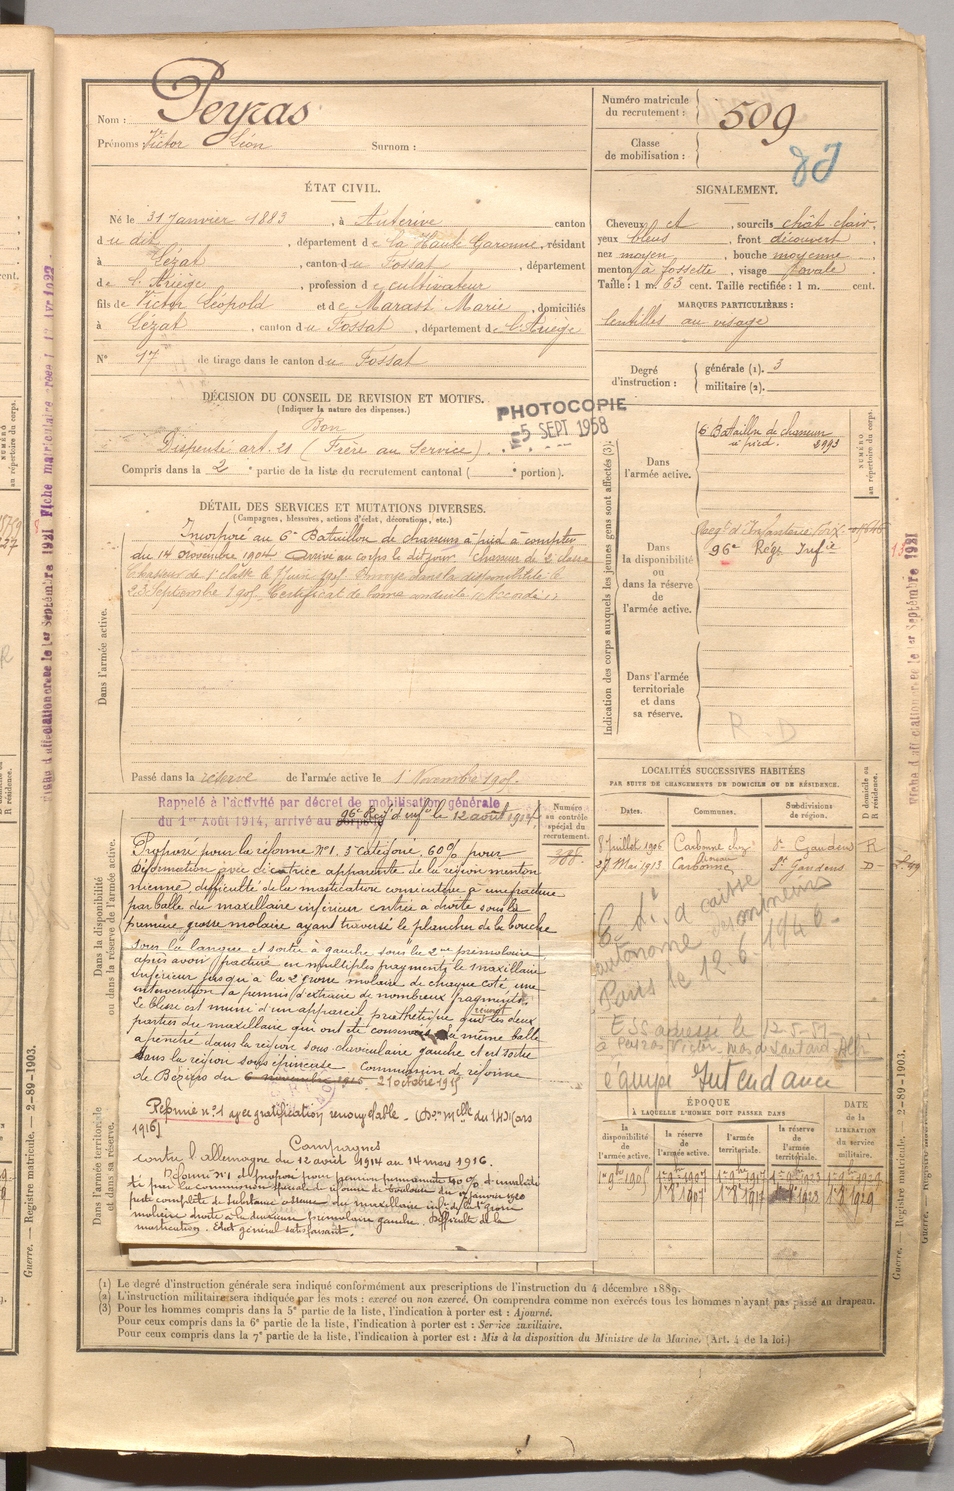 Nom : Peyras
Prénoms : Victor Léon Surnom :
Numéro matricule
du recrutement : 509
Classe
de mobilisation :
ÉTAT CIVIL.
Né le 31 Janvier 1883, à Auterive canton
du dit, département de la Haute Garonne, résidant
à Lézat, canton du Fossat, département
de l'Ariège, profession de cultivateur
fils de Victor Léopold et de Marast Marie, domiciliés
à Lézat, canton du Fossat, département de l'Ariège
N° 17 de tirage dans le canton du Fossat
SIGNALEMENT.
Cheveux ct, sourcils chât clair,
yeux bleus, front découvert
nez moyen, bouche moyenne,
menton à fossette, visage ovale
Taille : 1 m. 63 cent. Taille rectifiée : 1 m. cent.
MARQUES PARTICULIÈRES :
lentilles au visage
Degré
d'instruction :
générale (1). 3
militaire (2).
DÉCISION DU CONSEIL DE REVISION ET MOTIFS.
(Indiquer la nature des dispenses.)
Bon
Dispensé art. 21 (Frère au Service)
Compris dans la 2e partie de la liste du recrutement cantonal ( portion).
PHOTOCOPIE
5 SEPT 1958
DÉTAIL DES SERVICES ET MUTATIONS DIVERSES.
(Campagnes, blessures, actions d'éclat, décorations, etc.)
Dans l'armée active.
Incorporé au 6e Bataillon de chasseurs à pied à compter
du 14 novembre 1904 Arrivé au corps le dit jour Chasseur de 2e classe
Chasseur de 1e classe le juin 1905 Envoyé dans la disponibilité le
23 Septembre 1905 Certificat de bonne conduite "Accordé"
Passé dans la réserve de l'armée active le 1 Novembre 1907
Indication des corps auxquels les jeunes gens sont affectés (3).
NUMÉRO
au répertoire du corps.
Dans
l'armée active.
6 Bataillon de chasseurs
à pied. 2993
Dans
la disponibilité
ou
dans la réserve
de
l'armée active.
Régt d'Infanterie
96e Régt Infie
Dans l'armée
territoriale
et dans
sa réserve.
R D
Dans la disponibilité
ou dans la réserve de l'armée active.
Rappelé à l'activité par décret de mobilisation générale
du 1er Août 1914, arrivé au corps le
96e Reg d'infie le 12 août 1914
Numéro
au contrôle
spécial du
recrutement.
388
Proposé pour la réforme N°1. 3e catégorie, 60% pour
Déformation avec cicatrice apparente de la région menton
nienne, difficulté de la mastication consécutive à une fracture
par balle du maxillaire inférieur entrée à droite sous la
première grosse molaire ayant traversé le plancher de la bouche
sous la langue et sortie à gauche sous la 2me prémolaire
après avoir fracturé en multiples fragments le maxillaire
inférieur jusqu'à la 2e grosse molaire de chaque coté une
intervention a permis d'extraire de nombreux fragments.
Le blessé est muni d'un appareil prothétique qui réunit les deux
parties du maxillaire qui ont été conservées La même balle
a pénétré dans la région sous-claviculaire gauche et est sortie
dans la région sous épineuse. Commission de réforme
de Béziers du 6 novembre 1915. 21 octobre 1915
Réformé n°1 avec gratification renouvelable - (Don melle du 14 Mars
1916)
Campagnes
contre l'allemagne du 12 août 1914 au 14 mars 1916.
Dans l'armée territoriale
et dans sa réserve.
Réformé N°1 et proposé pour pension permanente 40% d'invalidité
par la commission spéciale de réforme de Toulouse du 7 janvier 1920
perte complète de substance osseuse du maxillaire infr de la 1e grosse
molaire droite à la deuxième prémolaire gauche. Difficulté de la
mastication. Etat général satisfaisant.
LOCALITÉS SUCCESSIVES HABITÉES
PAR SUITE DE CHANGEMENTS DE DOMICILE OU DE RÉSIDENCE.
Dates. Communes. Subdivisions
de région. D domicile ou
R résidence.
8 Juillet 1906 Carbonne St Gaudens R
27 Mai 1913 Carbonne St Gaudens D
à caisse
autonome des mineurs
Paris le 12.6.1946
adressé le 12-5-51
à Peyras Victor
équipe Intendance
ÉPOQUE
À LAQUELLE L'HOMME DOIT PASSER DANS
la
disponibilité
de
l'armée active.
la réserve
de
l'armée active.
l'armée
territoriale.
la réserve
de
l'armée
territoriale.
DATE
de la
LIBÉRATION
du service
militaire.
1er 9bre 1905 1er 9bre 1907 1er 9bre 1917 1er 9bre 1923 1er 9bre 1929
1er 8 1907 1er 8 1917 1923 1er 8 1929
(1) Le degré d'instruction générale sera indiqué conformément aux prescriptions de l'instruction du 4 décembre 1889.
(2) L'instruction militaire sera indiquée par les mots : exercé ou non exercé. On comprendra comme non exercés tous les hommes n'ayant pas passé au drapeau.
(3) Pour les hommes compris dans la 5e partie de la liste, l'indication à porter est : Ajourné.
Pour ceux compris dans la 6e partie de la liste, l'indication à porter est : Service auxiliaire.
Pour ceux compris dans la 7e partie de la liste, l'indication à porter est : Mis à la disposition du Ministre de la Marine. (Art. 4 de la loi.)
Guerre. — Registre matricule. — 2-89-1903.
Guerre. — Registre matricule. — 2-89-1903.